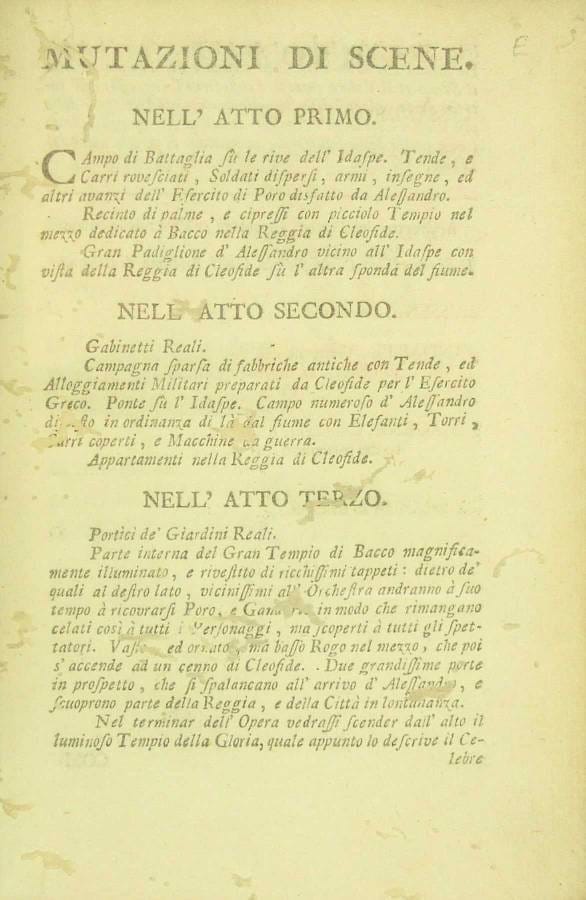 MUTAZIONI DI SCENE.
NELL' ATTO PRIMO.
CAmpo di Battaglia ſù le rive dell' Idaſpe. Tende, e
Carri roveſciati, Soldati diſperſi, armi, inſegne, ed
altri avanzi dell' Eſercito di Poro disfatto da Aleſſandro.
Recinto di palme, e cipreſſi con picciolo Tempio nel
mezzo dedicato à Bacco nella Reggia di Cleofide.
Gran Padiglione d' Aleſſandro vicino all' Idaſpe con
viſta della Reggia di Cleofide ſù l' altra ſponda del fiume.
NELL ATTO SECONDO.
Gabinetti Reali.
Campagna ſparſa di fabbriche antiche con Tende, ed
Alloggiamenti Militari preparati da Cleofide per l' Eſercito
Greco. Ponte ſu l' Idaſpe. Campo numeroſo d' Aleſſandro
in ordinanza di là dal fiume con Elefanti, Torri,
Carri coperti, e Macchine da guerra.
Appartamenti nella Reggia di Cleofide.
NELL' ATTO TERZO.
Portici de' Giardini Reali.
Parte interna del Gran Tempio di Bacco magnifica-
mente illuminato, e riveſtito di ricchiſſimi tappeti: dietro de'
quali al deſtro lato, viciniſſimi all' Orcheſtra andranno à ſuo
tempo à ricovrarſi Poro, e in modo che rimangano
celati così à tutti i Perſonaggi, ma ſcoperti à tutti gli ſpet-
tatori. Vaſto, ed ornato, mà baſſo Rogo nel mezzo, che poi
s' accende ad un cenno di Cleofide. Due grandiſſime porte
in proſpetto, che ſi ſpalancano all' arrivo d' Aleſſandro, e
ſcuoprono parte della Reggia, e della Città in lontananza.
Nel terminar dell' Opera vedraſſi ſcender dall' alto il
luminoſo Tempio della Gloria, quale appunto lo deſcrive il Ce-
lebre